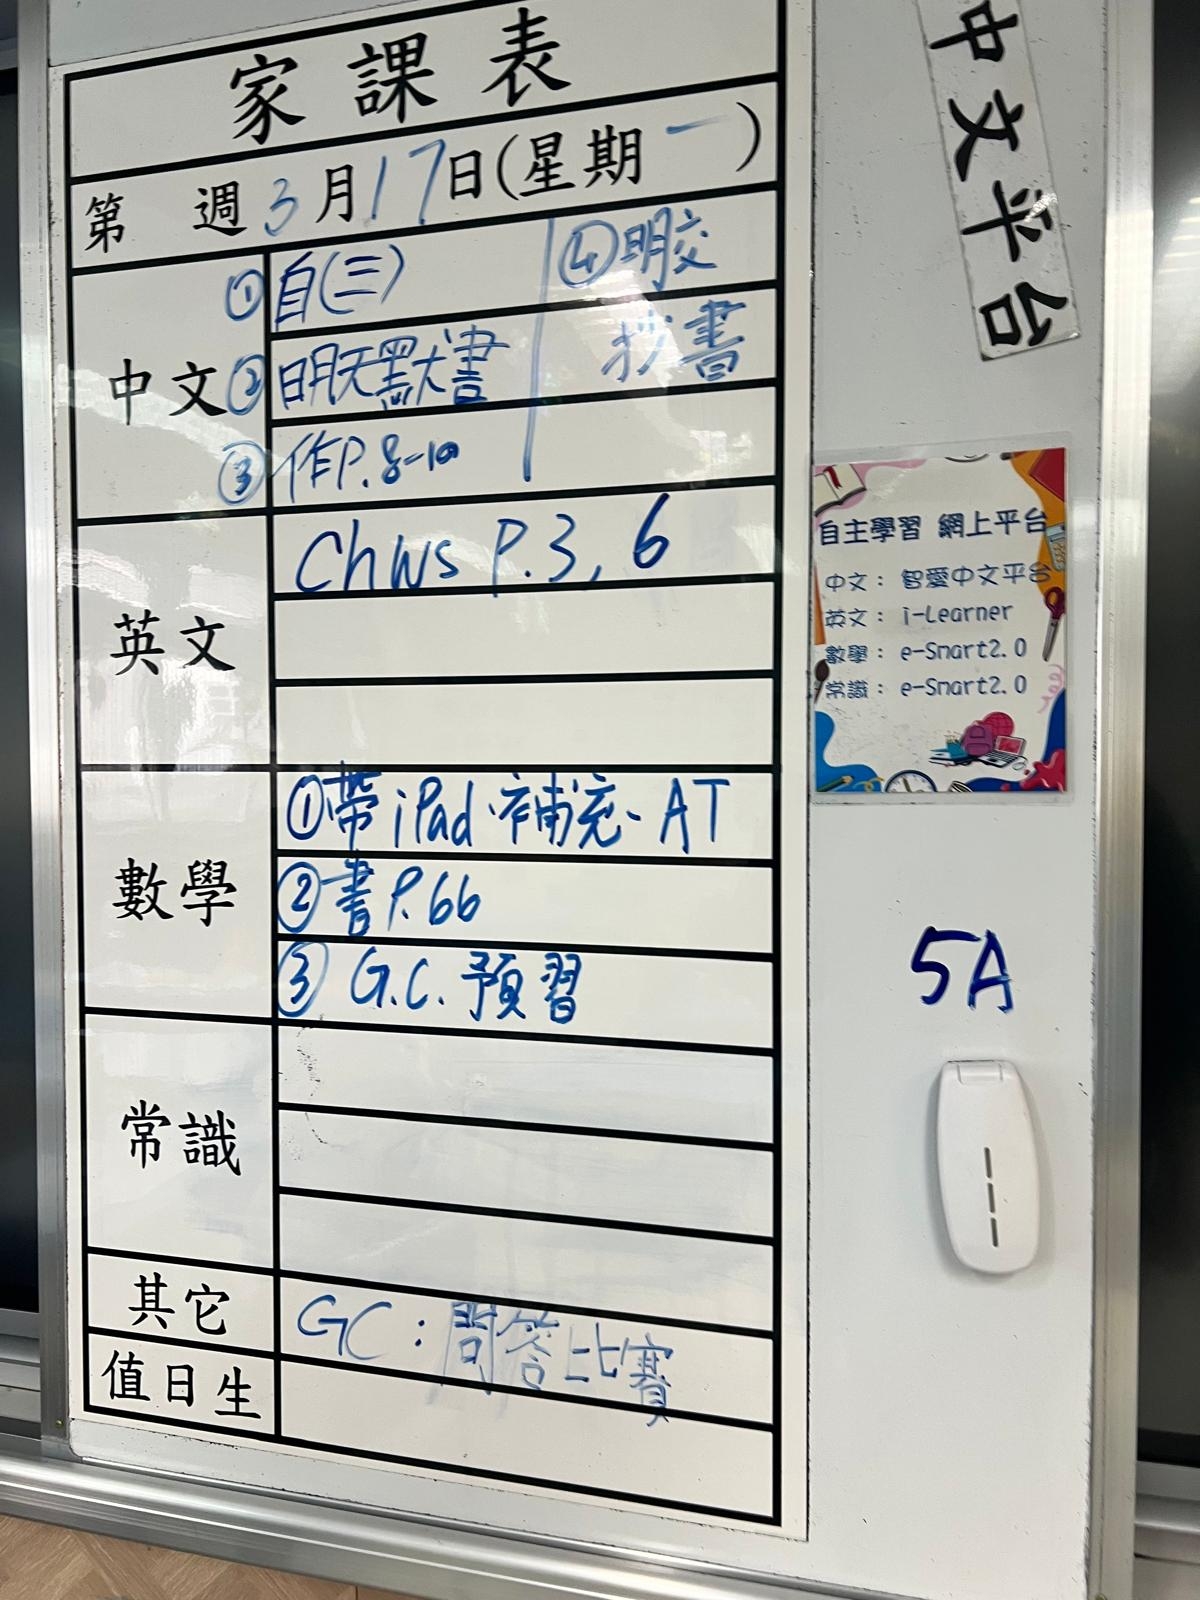 家課表
第 週 3月17日(星期一)
中文
①自(三)
②明天默書
③作P.8-10
④明交
抄書
英文
Ch WS P.3, 6
數學
①帶iPad、補充、AT
②書P.66
③G.C.預習
常識
其它
GC：問答比賽
值日生
中文平台
自主學習 網上平台
中文： 智愛中文平台
英文： i-Learner
數學： e-Smart2.0
常識： e-Smart2.0
5A